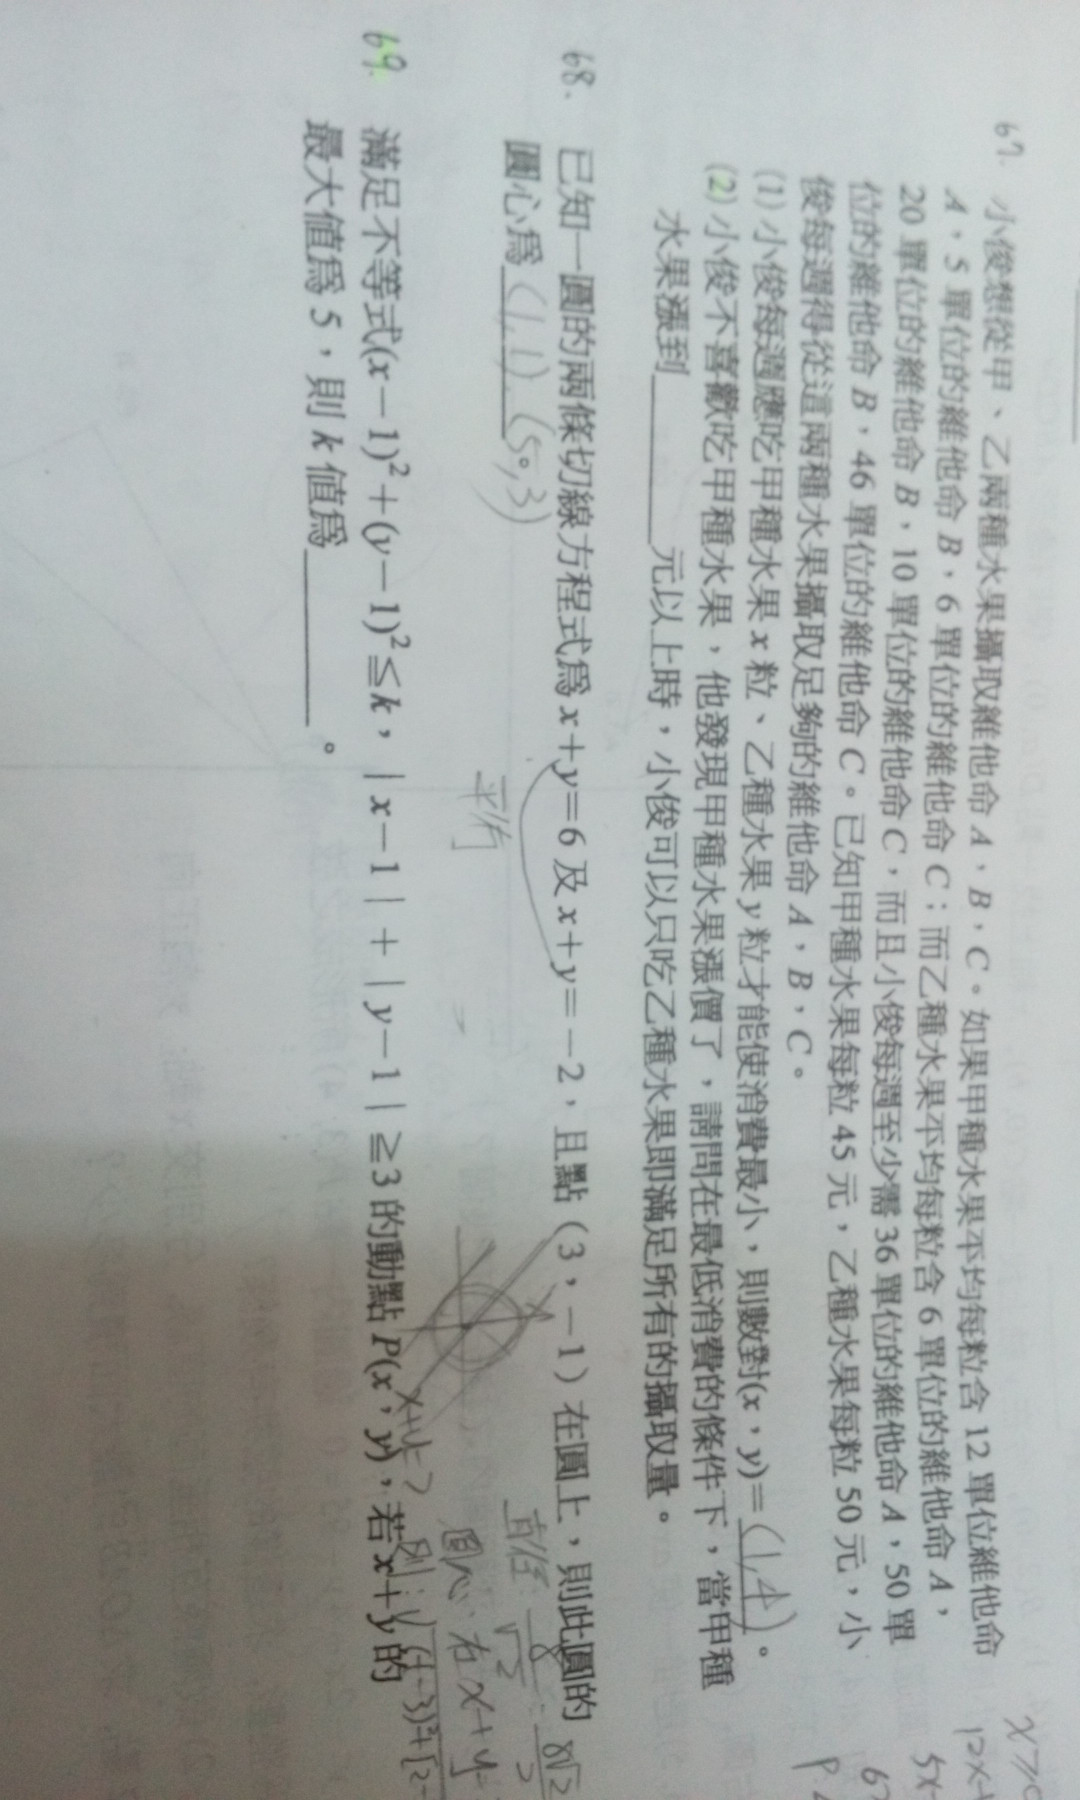 67. 小俊想從甲、乙兩種水果攝取維他命 A,B,C。如果甲種水果平均每粒含 12 單位維他命
A,5 單位的維他命 B,6 單位的維他命 C;而乙種水果平均每粒含 6 單位的維他命 A,
20 單位的維他命 B,10 單位的維他命 C,而且小俊每週至少需 36 單位的維他命 A,50 單
位的維他命 B,46 單位的維他命 C。已知甲種水果每粒 45 元,乙種水果每粒 50 元,小
俊每週得從這兩種水果攝取足夠的維他命 A,B,C。
(1) 小俊每週應吃甲種水果 x 粒、乙種水果 y 粒才能使消費最小,則數對(x,y)=(1,4)。
(2) 小俊不喜歡吃甲種水果,他發現甲種水果漲價了,請問在最低消費的條件下,當甲種
水果漲到______元以上時,小俊可以只吃乙種水果即滿足所有的攝取量。
68. 已知一圓的兩條切線方程式為 x+y=6 及 x+y=-2,且點(3,-1)在圓上,則此圓的
圓心為(1,1)
平行
直徑: 8/√2 = 8√2/2
圓心: 在 x+y=
69. 滿足不等式(x-1)²+(y-1)²≤k,|x-1|+|y-1|≥3 的動點 P(x,y),若 x+y 的
最大值為 5,則 k 值為______。